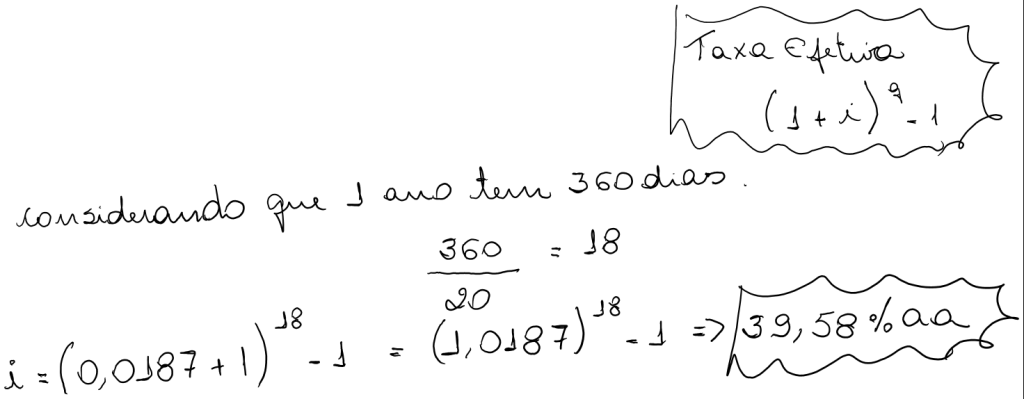 Taxa Efetiva
(1 + i)^q - 1
considerando que 1 ano tem 360 dias.
360/20 = 18
i = (0,0187 + 1)^18 - 1 = (1,0187)^18 - 1 => 39,58 % aa